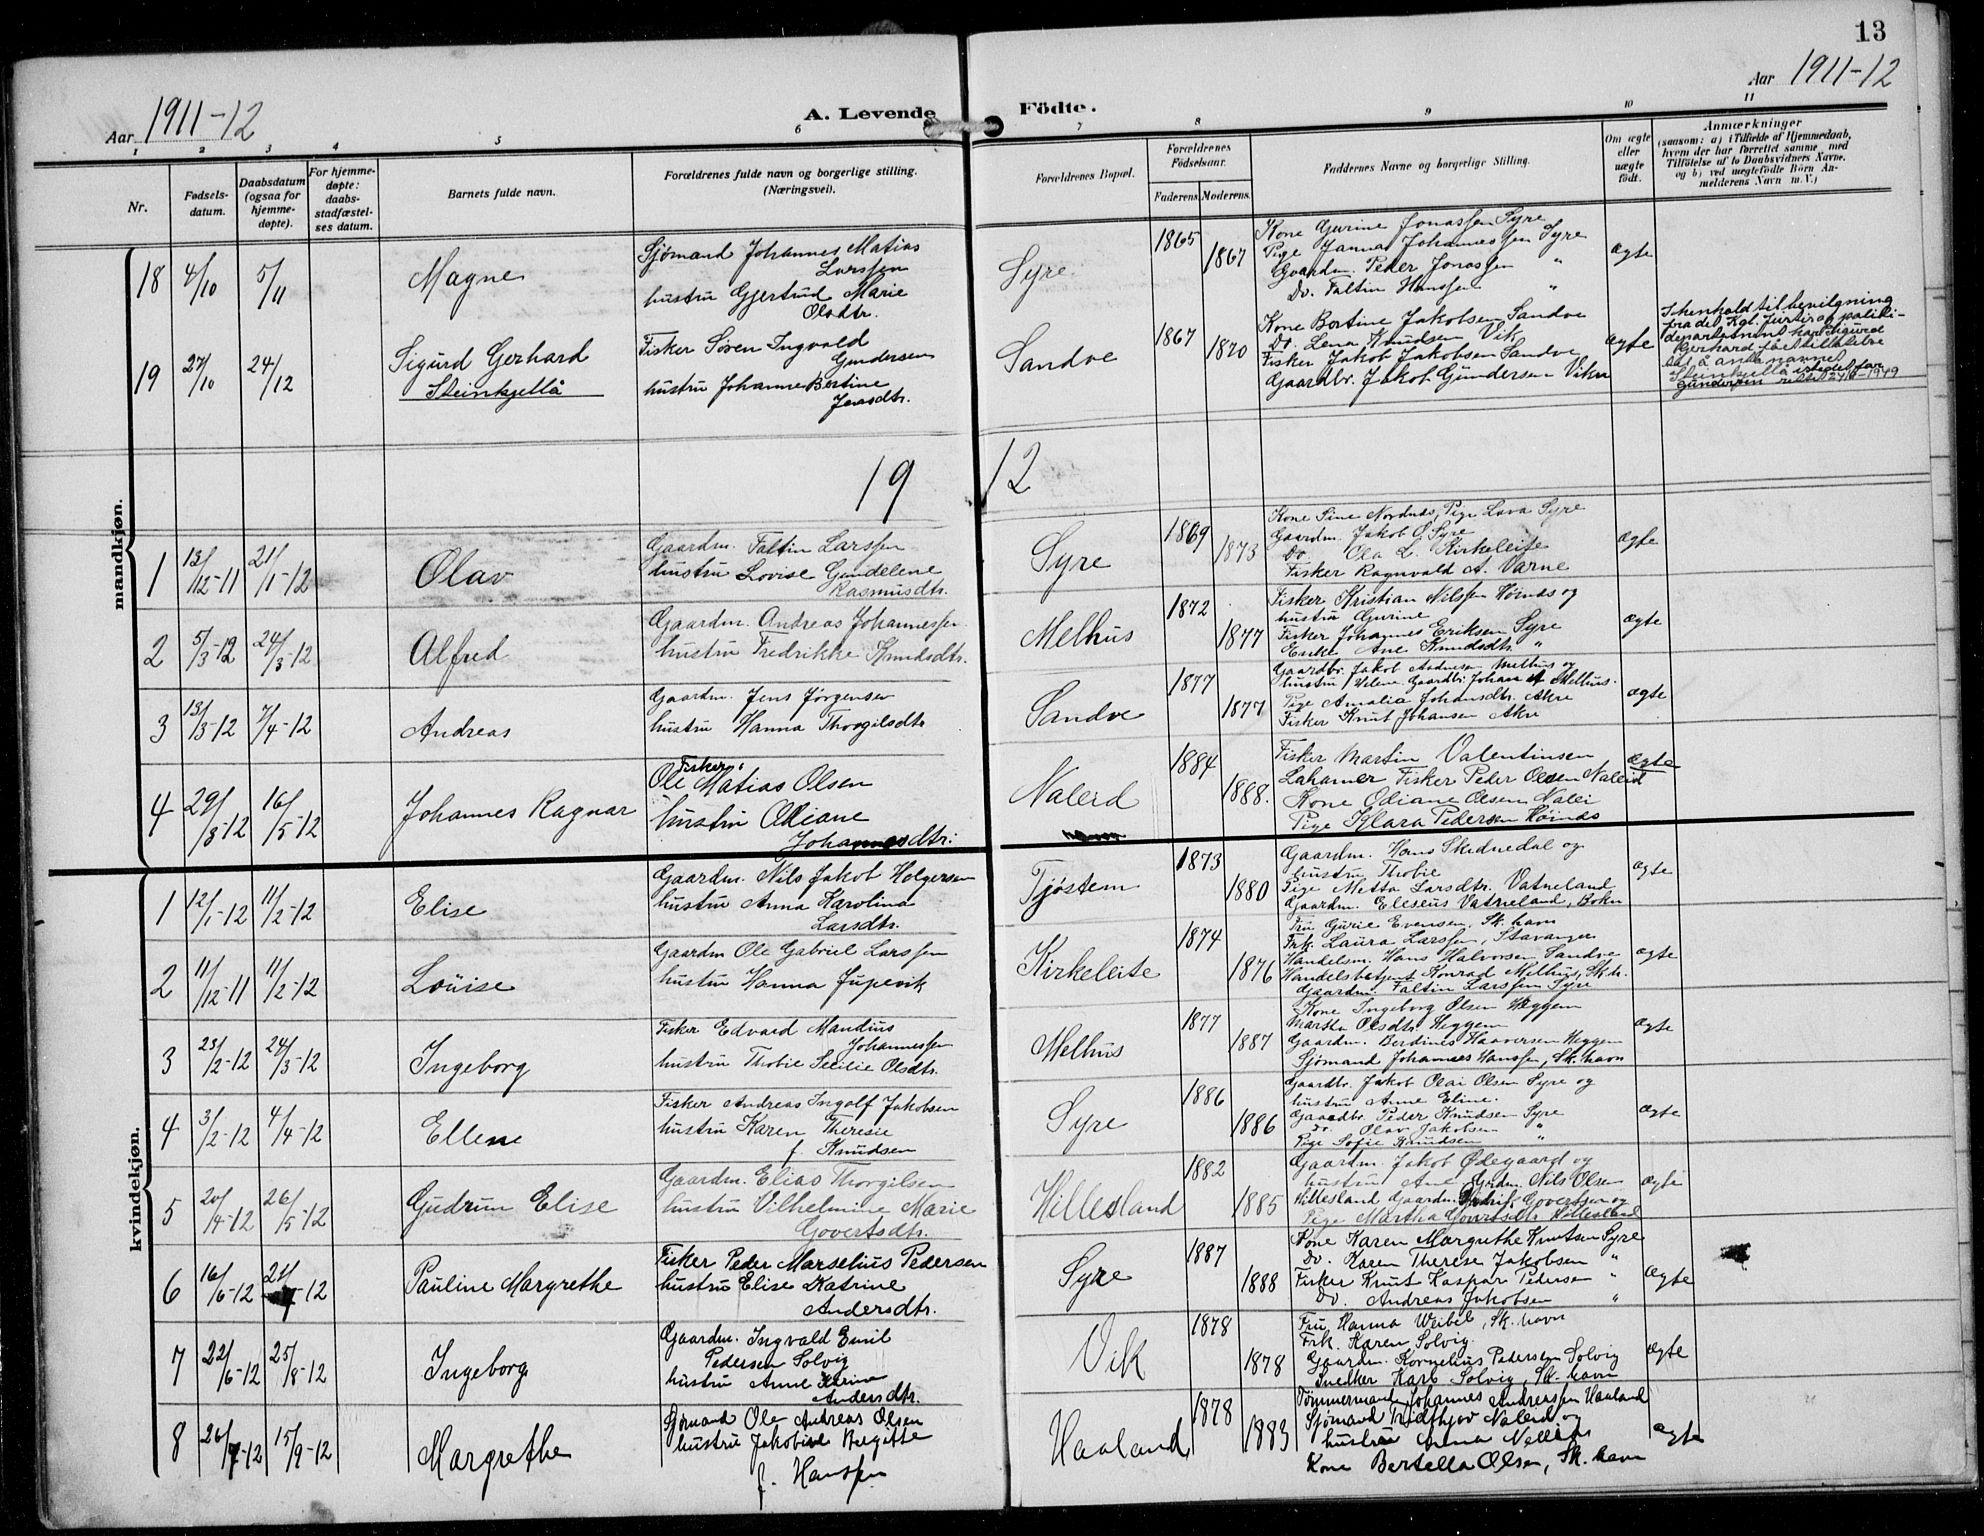 13
Aar 1911-12
A. Levende Födte.
Aar 1911-12
1 2 3 4 5 6 7 8 9 10 11
Nr.
Fødsels-
datum.
Daabsdatum
(ogsaa for
hjemme-
døpte).
For hjemme-
døpte:
daabs-
stadfæstel-
ses datum.
Barnets fulde navn.
Forældrenes fulde navn og borgerlige stilling.
(Næringsvei).
Forældrenes Bopæl.
Forældrenes
Fødselsaar.
Faderens. Moderens.
Faddernes Navne og borgerlige Stilling.
Om ægte
eller
uægte
født.
Anmærkninger
(saasom: a) i Tilfælde af Hjemmedaab,
hvem der har forrettet samme med
Tilføielse af to Daabsvidners Navne.
og b) ved uægtefødte Börn An-
melderens Navn m. V.)
mandkjøn.
18 4/10 5/11 Magne
Sjømand Johannes Matias
Larssen
hustru Gjertrud Marie
Olsdtr.
Syre 1865 1867
Kone Gurine Jonassen Syre
Pige Janna Johannessen Syre
Gaardm. Peder Jonassen "
Do. Faltin Hanssen "
ægte
19 27/10 24/12 Sigurd Gerhard
Steinkjellå
Fisker Søren Ingvald
Gundersen
hustru Johanne Bertine
Jensdtr.
Sandve 1867 1870
Kone Bertine Jakobsen Sandve
Do. Lena Knudsen Vik
Fisker Jakob Jakobsen Sandve
Gaardbr. Jakob Gundersen Vikre
ægte
I henhold til bevilgning
fra det Kgl. Justis og politi-
departement har Sigurd
Gerhard fået tillatelse
til å anta navnet
Steinkjellå istedet for
Gundersen 1949
19 12
1 13/12-11 21/1-12 Olav
Gaardm. Faltin Larssen
hustru Lovise Gundelene
Rasmusdtr.
Syre 1869 1873
Kone Sine Nordnes, Pige Lava Syre
Gaardm. Jakob O. Syre
Do Ola L. Kirkeleite
Fisker Ragnvald A. Varne
ægte
2 5/3-12 24/3-12 Alfred
Gaardm. Andreas Johannessen
hustru Fredrikke Knudsdtr.
Melhus 1872 1877
Fisker Kristian Nilssen Høinds og
hustru Gurine
Fisker Johannes Eriksen Syre
Enke Ane Knudsdtr. "
ægte
3 13/3-12 7/4-12 Andreas
Gaardm. Jens Jørgensen
hustru Hanna Thorgilsdtr
Sandve 1877 1877
Gaardbr. Jakob Andersen Melhus og
hustru Helene. Gaardbr. Johan A Melhus.
Pige Amalia Johansdtr. Akre
Fisker Knut Johansen Akre
ægte
4 29/3-12 16/5-12 Johannes Ragnar
Fisker
Ole Matias Olsen
hustru Odiane
Johannesdtr.
Naleid 1884 1888.
Fisker Martin Valentinsen
Lahamer Fisker Peder Olsen Naleid
Kone Odiane Olsen Nalei
Pige Klara Pedersen Høinds
ægte
kvindekjøn.
1 12/1-12 11/2-12 Elise
Gaardm. Nils Jakob Holgersen
hustru Anna Karolina
Larsdtr.
Tjøstem 1873 1880
Gaardm. Hans Skednedal og
hustru Thobie
Pige Metta Larsdtr. Vatneland
Gaardm. Eleseus Vatneland, Bokn
ægte
2 11/12-11 11/2-12 Louise
Gaardm Ole Gabriel Larssen
hustru Hanna Jupevik
Kirkeleite 1874 1876
Fru Gurie Evensen, Sk. havn
Frk. Laura Larssen, Stavanger
Handelsm. Hans Halvorsen Sandve
Handelsbetjent Konrad Melhus, Sk.
Gaardm. Faltin Larssen Syre
ægte
3 23/2-12 24/3-12 Ingeborg
Fisker Edvard Mandius
Johannessen
hustru Thobie Secilie Olsdtr.
Melhus 1877 1887
Kone Ingeborg Olsen Heggem
Martha Olsdtr. Heggem
Gaardm. Berdines Haaversen Heggem
Sjømand Johannes Hanssen, Sk. havn
ægte
4 3/2-12 4/4-12 Ellene
Fisker Andreas Ingolf Jakobsen
hustru Karen Theresie
f. Knudsen
Syre 1886 1886
Gaardbr. Jakob Olai Olsen Syre og
hustru Anne Eline.
Gaardbr. Peder Knudsen Syre
Do. Olav Jakobsen "
Pige Sofie Knudsen "
ægte
5 20/4-12 26/5-12 Gudrun Elise
Gaardm. Elias Thorgilsen
hustru Vilhelmine Marie
Govertsdtr.
Hillesland 1882 1885
Gaardm. Jakob Ødegaard og
hustru Ane. Nils Olsen
Hillesland Gaardm. Govertsen og
Pige Martha Govertsdtr. Hillesland
ægte
6 16/6-12 21/7-12 Pauline Margrethe
Fisker Peder Marselius Pedersen
hustru Elise Katrine
Andersdtr.
Syre 1887 1888
Kone Karen Margrethe Knutsen Syre
Do. Karen Therese Jakobsen "
Fisker Knut Kaspar Pedersen "
Do. Andreas Jakobsen "
ægte
7 22/6-12 25/8-12 Ingeborg
Gaardm. Ingvald Emil
Pedersen Solvig
hustru Anne Karine
Andersdtr.
Vik 1878 1878
Fru Hanna Weibel, Sk. havn
Frk. Karen Solvig.
Gaardm. Kornelius Pedersen Solvig
Snedker Karl Solvig, Sk. havn
ægte
8 26/7-12 15/9-12 Margrethe
Sjømand Ole Andreas Olsen
hustru Jakobine Bergitte
f. Hanssen
Haaland 1878 1883
Tømmermand Johannes Andreassen Haaland
Sjømand Fridthjov Naleid og
hustru Anna
Kone Bertella Olsen, Sk. havn
ægte